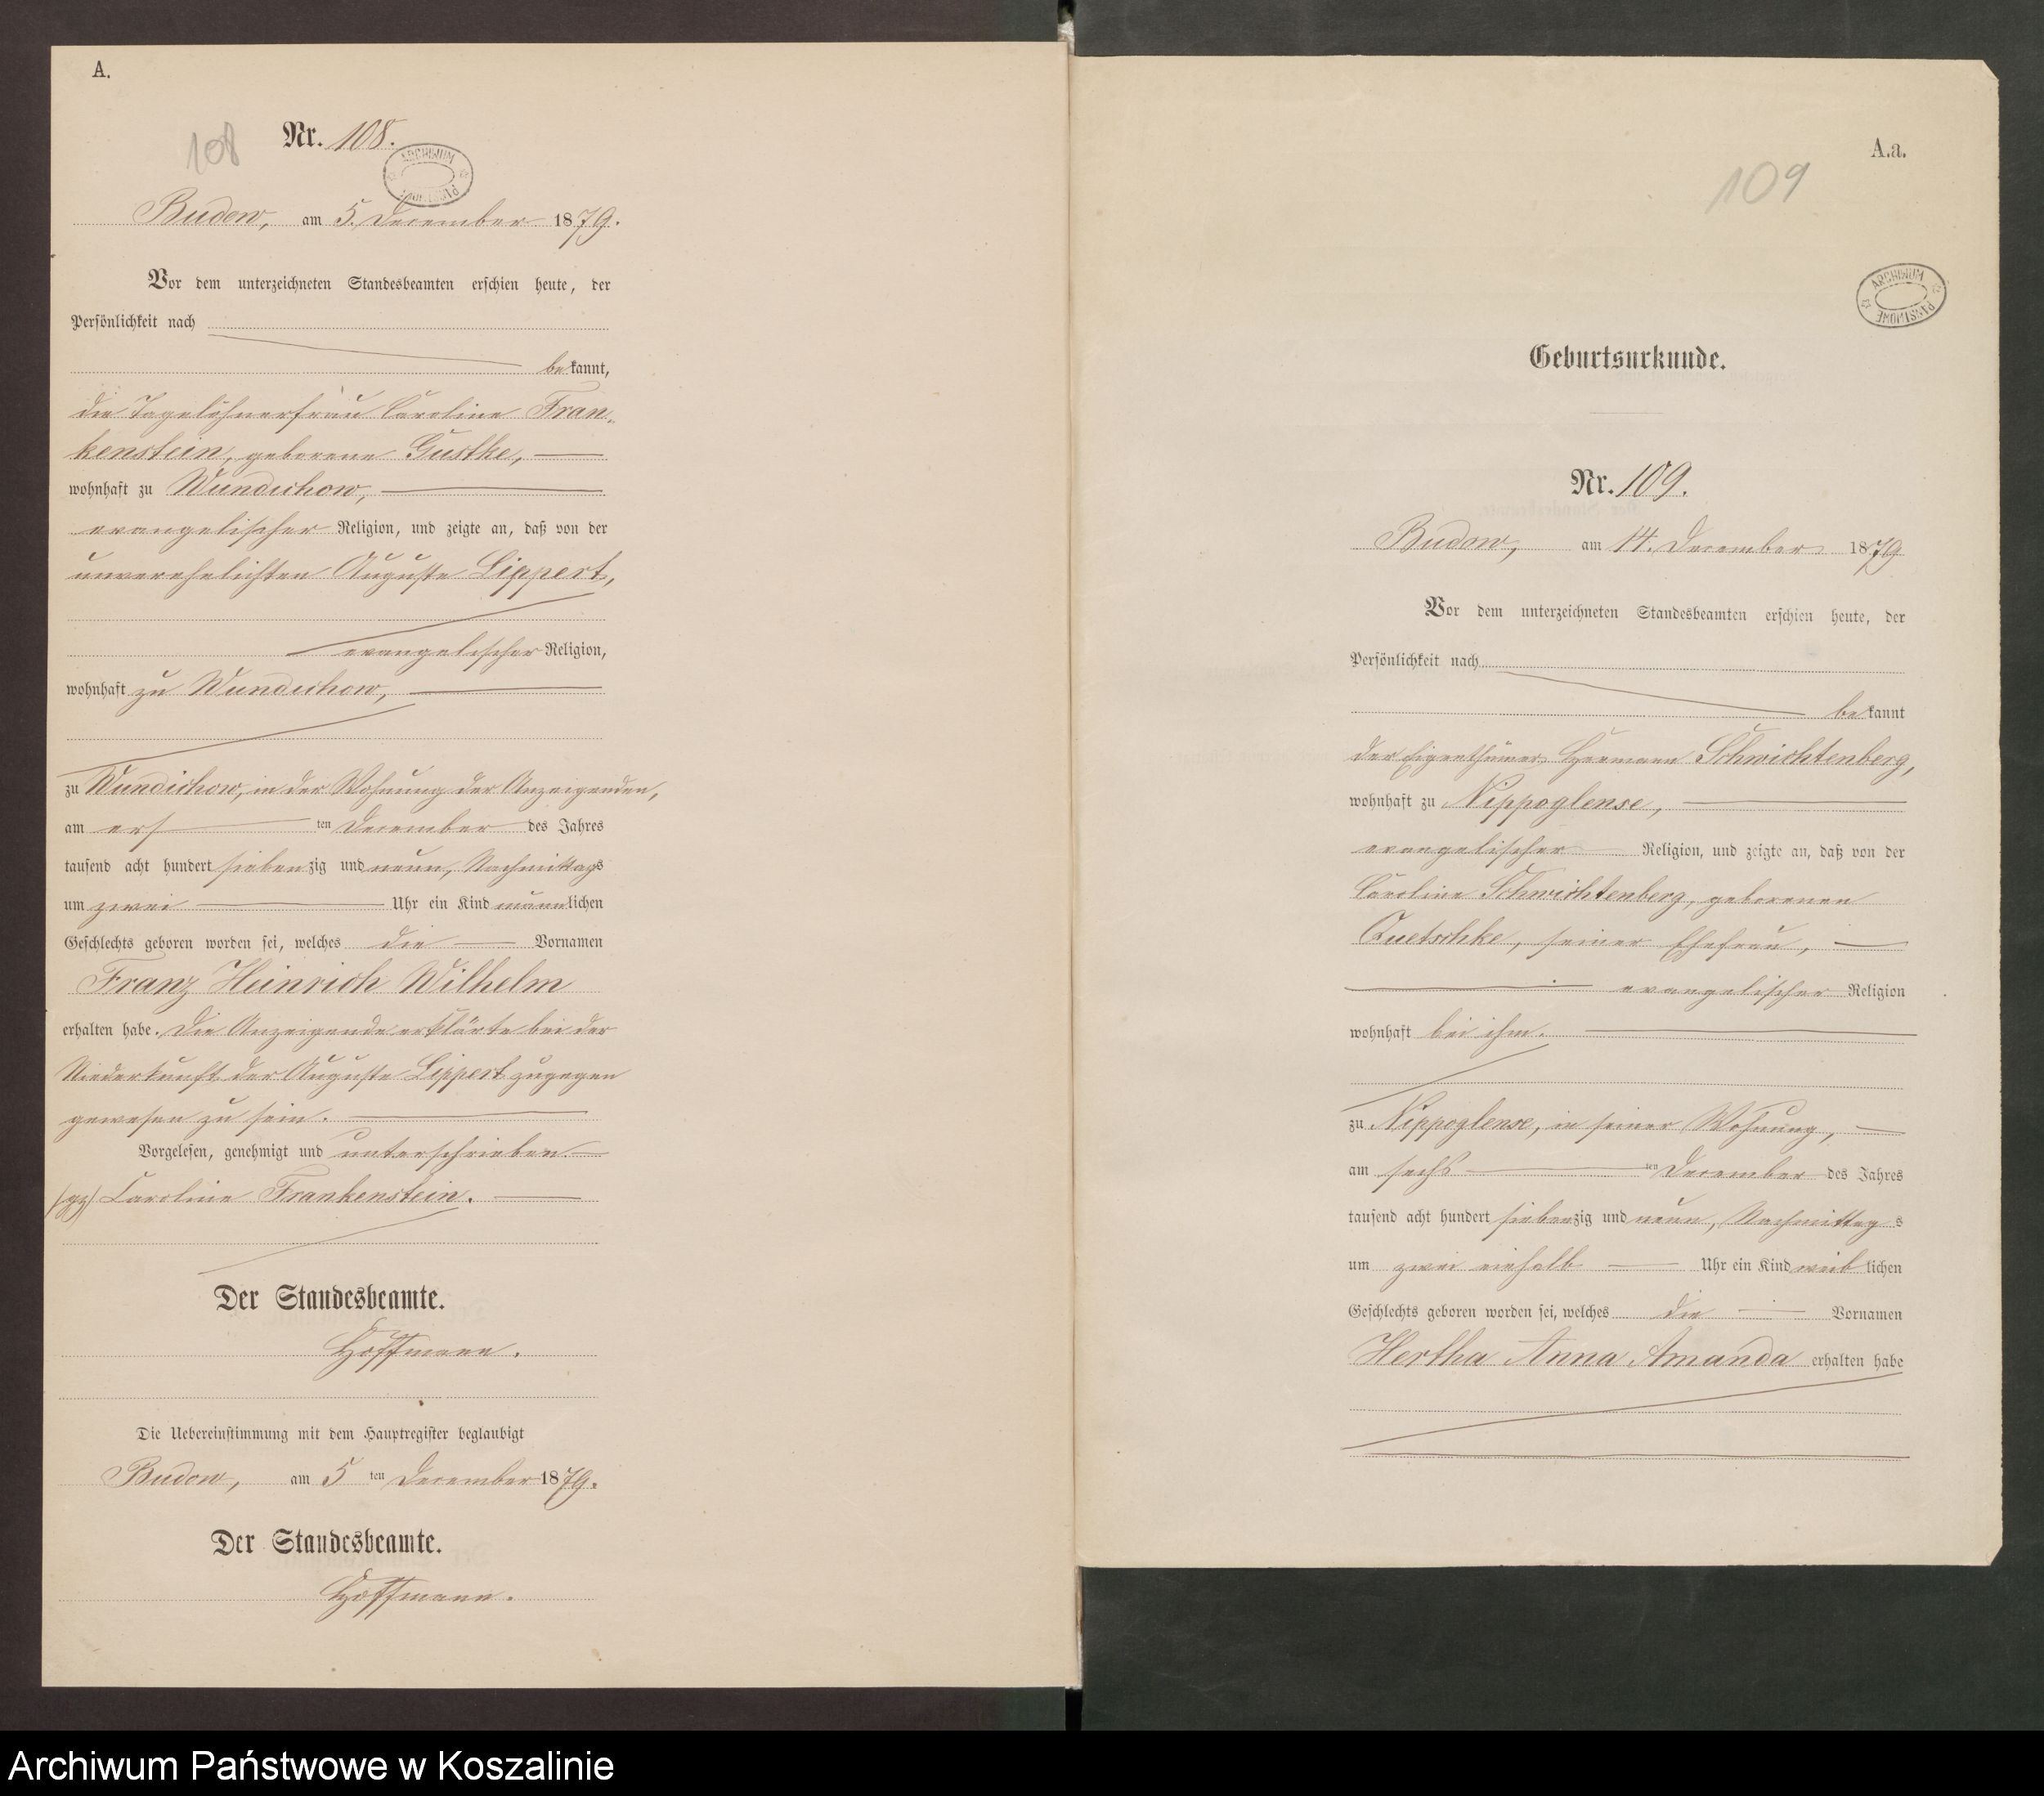 A.
108
Nr. 108.
ARCHIWUM PAŃSTWOWE
Budow, am 5. December 1879.
Vor dem unterzeichneten Standesbeamten erschien heute, der
Persönlichkeit nach
bekannt,
die Tagelöhnerfrau Caroline Fran-
kenstein, geborene Gustke,
wohnhaft zu Wundichow,
evangelischer Religion, und zeigte an, daß von der
unverehelichten Auguste Lippert,
evangelischer Religion,
wohnhaft zu Wundichow,
zu Wundichow, in der Wohnung der Anzeigenden,
am ersten December des Jahres
tausend acht hundert siebenzig und neun, Nachmittags
um zwei Uhr ein Kind männlichen
Geschlechts geboren worden sei, welches die Vornamen
Franz Heinrich Wilhelm
erhalten habe. Die Anzeigende erklärte bei der
Niederkunft der Auguste Lippert zugegen
gewesen zu sein.
Vorgelesen, genehmigt und unterschrieben.
(gz) Caroline Frankenstein.
Der Standesbeamte.
Hoffmann.
Die Uebereinstimmung mit dem Hauptregister beglaubigt
Budow, am 5ten December 1879.
Der Standesbeamte.
Hoffmann.
A.a.
109
ARCHIWUM PAŃSTWOWE
Geburtsurkunde.
Nr. 109.
Budow, am 14. December 1879
Vor dem unterzeichneten Standesbeamten erschien heute, der
Persönlichkeit nach
bekannt
der Eigenthümer Hermann Schwichtenberg,
wohnhaft zu Nippoglense,
evangelischer Religion, und zeigte an, daß von der
Caroline Schwichtenberg, geborenen
Quetschke, seiner Ehefrau,
evangelischer Religion
wohnhaft bei ihm.
zu Nippoglense, in seiner Wohnung,
am sechsten December des Jahres
tausend acht hundert siebenzig und neun, Nachmittags
um zwei einhalb Uhr ein Kind weiblichen
Geschlechts geboren worden sei, welches die Vornamen
Hertha Anna Amanda erhalten habe
Archiwum Państwowe w Koszalinie